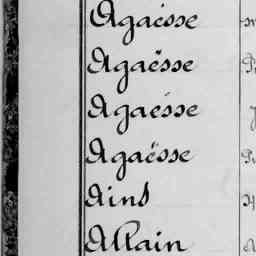 Agaësse
Agaësse
Agaësse
Agaësse
Ains
Allain